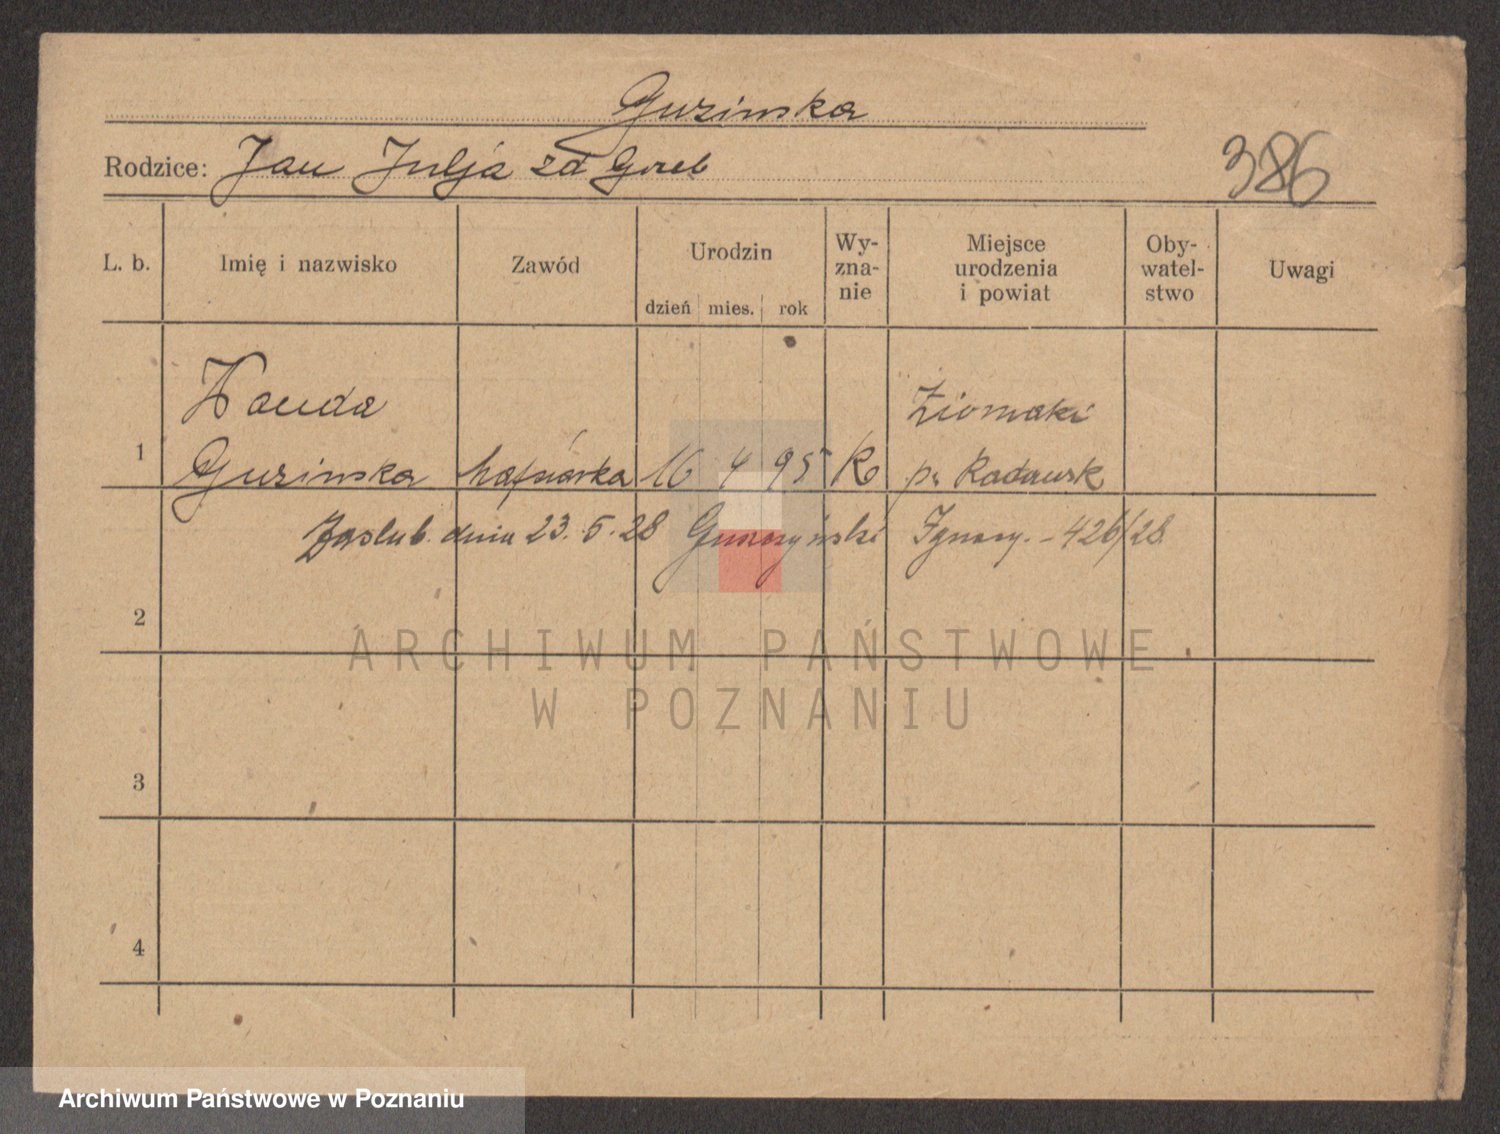 Guzinska
Rodzice: Jan Julja zd Goreb
386
L. b. Imię i nazwisko Zawód Urodzin dzień mies. rok Wy-zna-nie Miejsce urodzenia i powiat Oby-watel-stwo Uwagi
Wanda
1 Guzinska hafciarka 16 4 95 K
p. Radomsk
Zaslub. dnia 23.5.28 Ignacy. - 426/28
2
ARCHIWUM PAŃSTWOWE
W POZNANIU
3
4
Archiwum Państwowe w Poznaniu